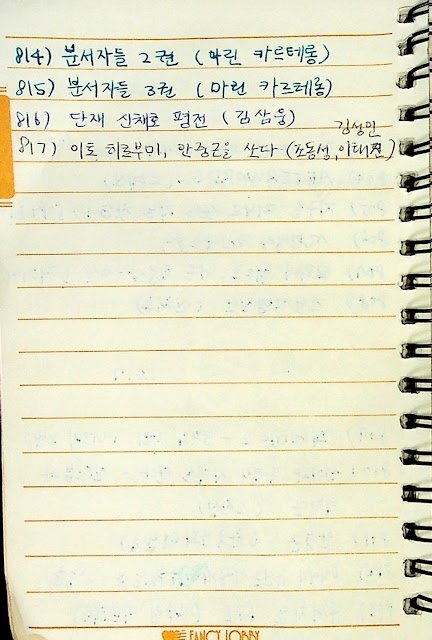 814) 분서자들 2권 (마린 카르테롱)
815) 분서자들 3권 (마린 카르테롱)
816) 단재 신채호 평전 (김삼웅)
김성민
817) 이토 히로부미, 안중근을 쏘다 (조동성, 이태진)
FANCY LOBBY